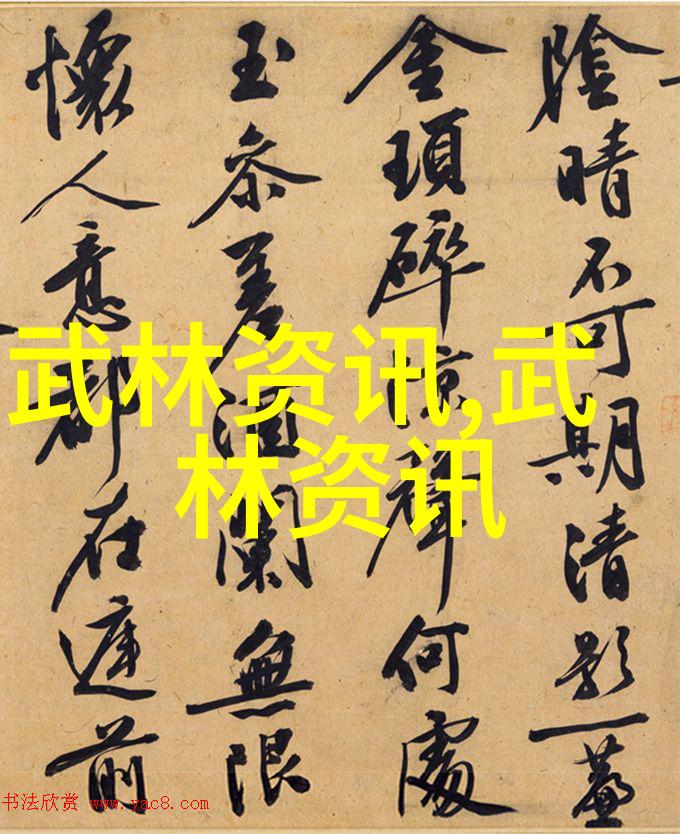 陰晴不可期清影一簾
金瑣碎涼聲何處
玉參差酒闌無限
懷人意都在庭前
武林资讯,武
林资讯
书法欣赏 www.yac8.com